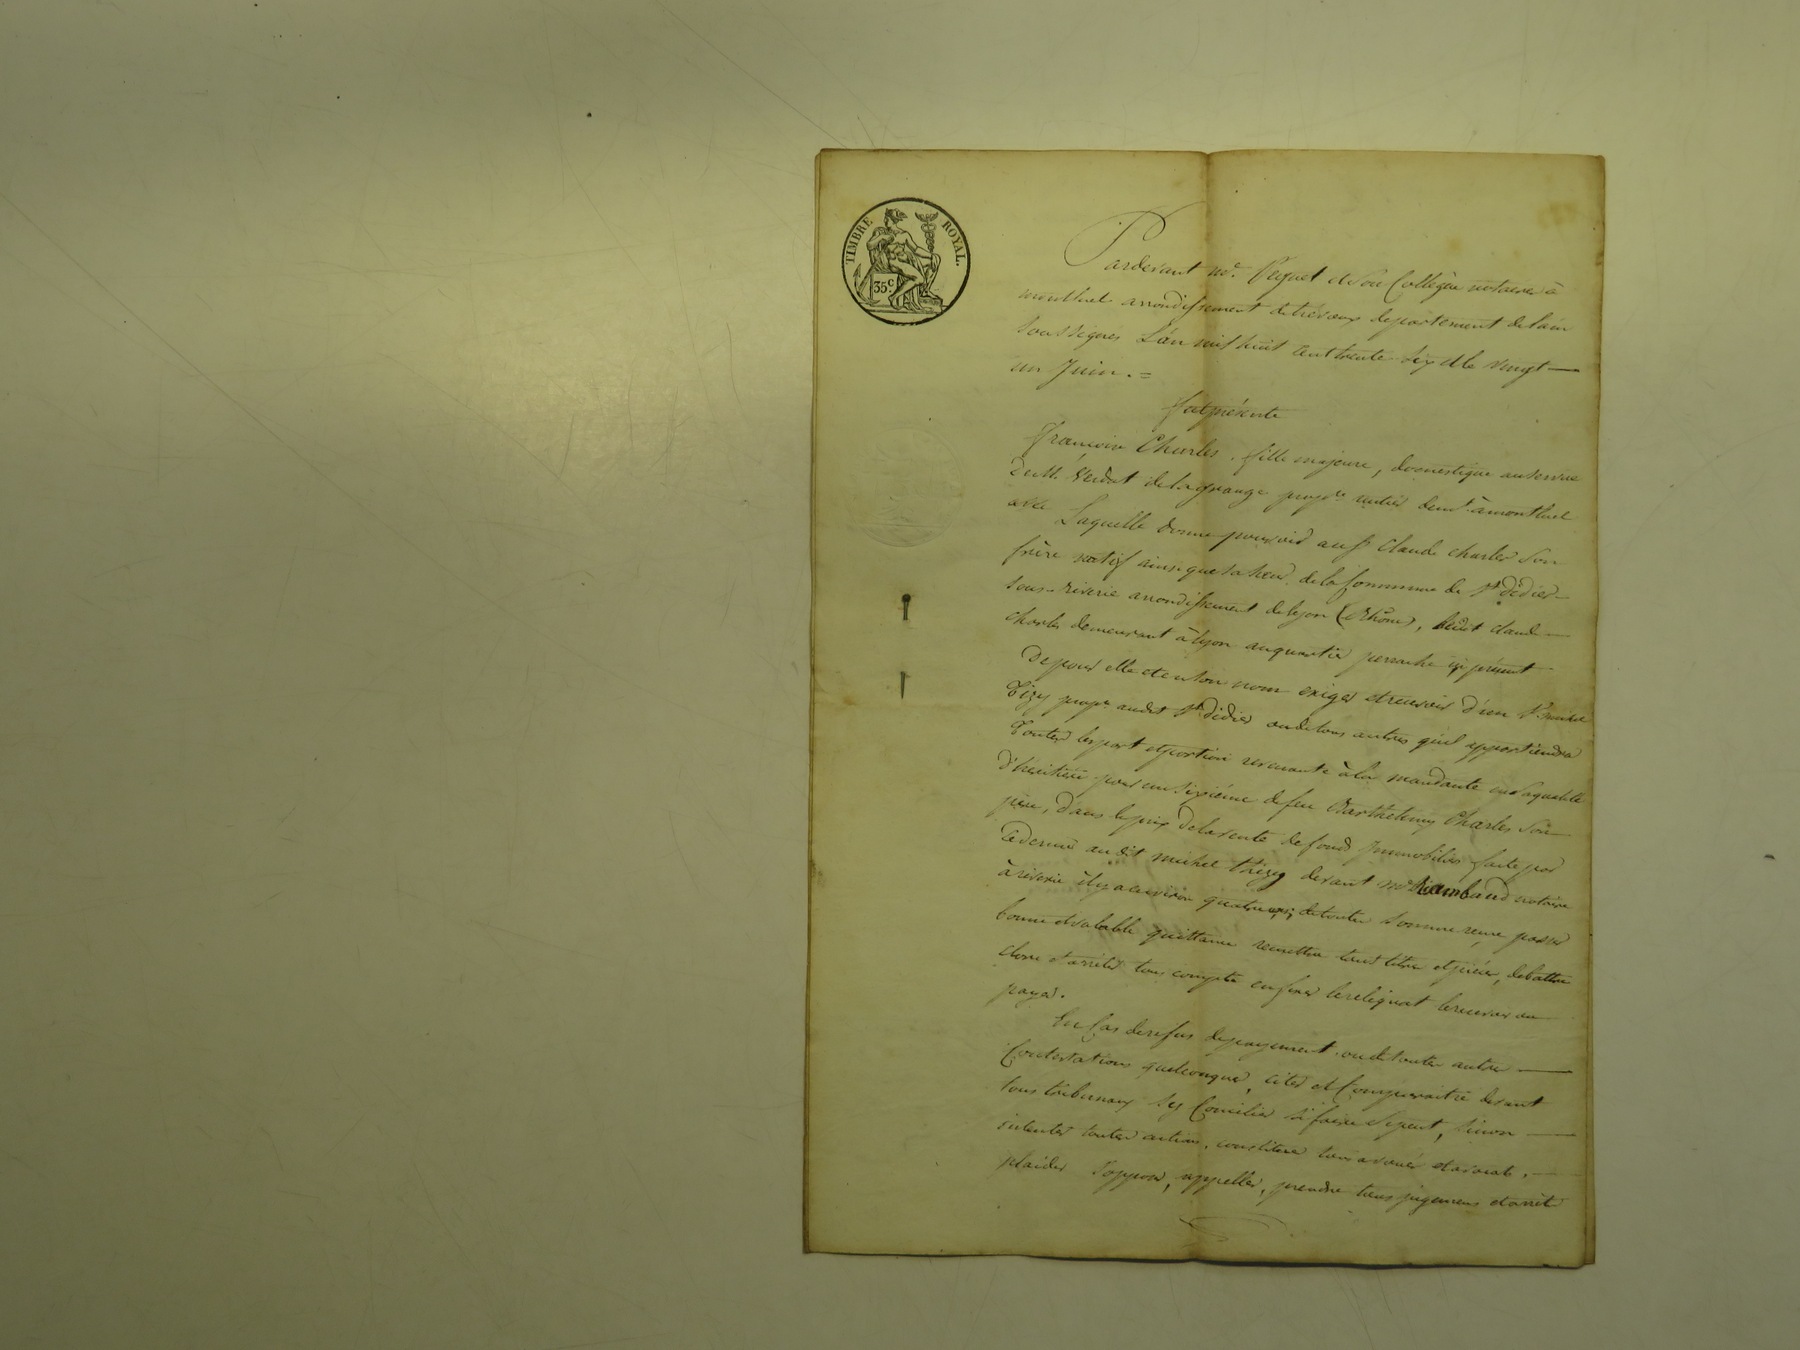 TIMBRE ROYAL.
35c.
Pardevant me. Pequet et son Collègue notaires à
montluel arrondissement de trevoux departement de l'ain
soussignés L'an mil huit cent trente six et le vingt
un Juin. =
fut présente
françoise Charles, fille majeure, domestique au service
de M. Verdat de la grange prop.re rentier demt. à montluel
avec Laquelle donne pouvoir au sr Claude charles son
frère natif ainsi que sa sœur, de la Commune de St didier
sous-riverie arrondissement de lyon (Rhône), ledit claude
charles demeurant à lyon au quartier perrache ici présent
De pour elle et en son nom exiger et recevoir d'un Sr michel
Tizy propre audit St didier ou de tous autres qu'il appartiendra
Toutes les part et portion revenante à la mandante en sa qualité
d'héritière pour un sixième de feu Barthelemy Charles son
père, dans le prix de la vente de fond Immobilier faite par
ce dernier audit michel thizy devant me notaire
à riverie il y a environ quatre ans; de toutes somme reçue passer
bonne et valable quittance remettre tous titre et pièces, debattre
clore et arrêter tous compte en fixer le reliquat le recevoir ou
payer.
En Cas de refus de payement, ou de toutes autres
Contestations quelconques, citer et Comparaitre devant
tous tribunaux s'y Concilier si faire se peut, sinon
intenter toutes actions, constituer tous avoués et avocats,
plaider s'opposer, appeller, prendre tous jugemens et arrêts